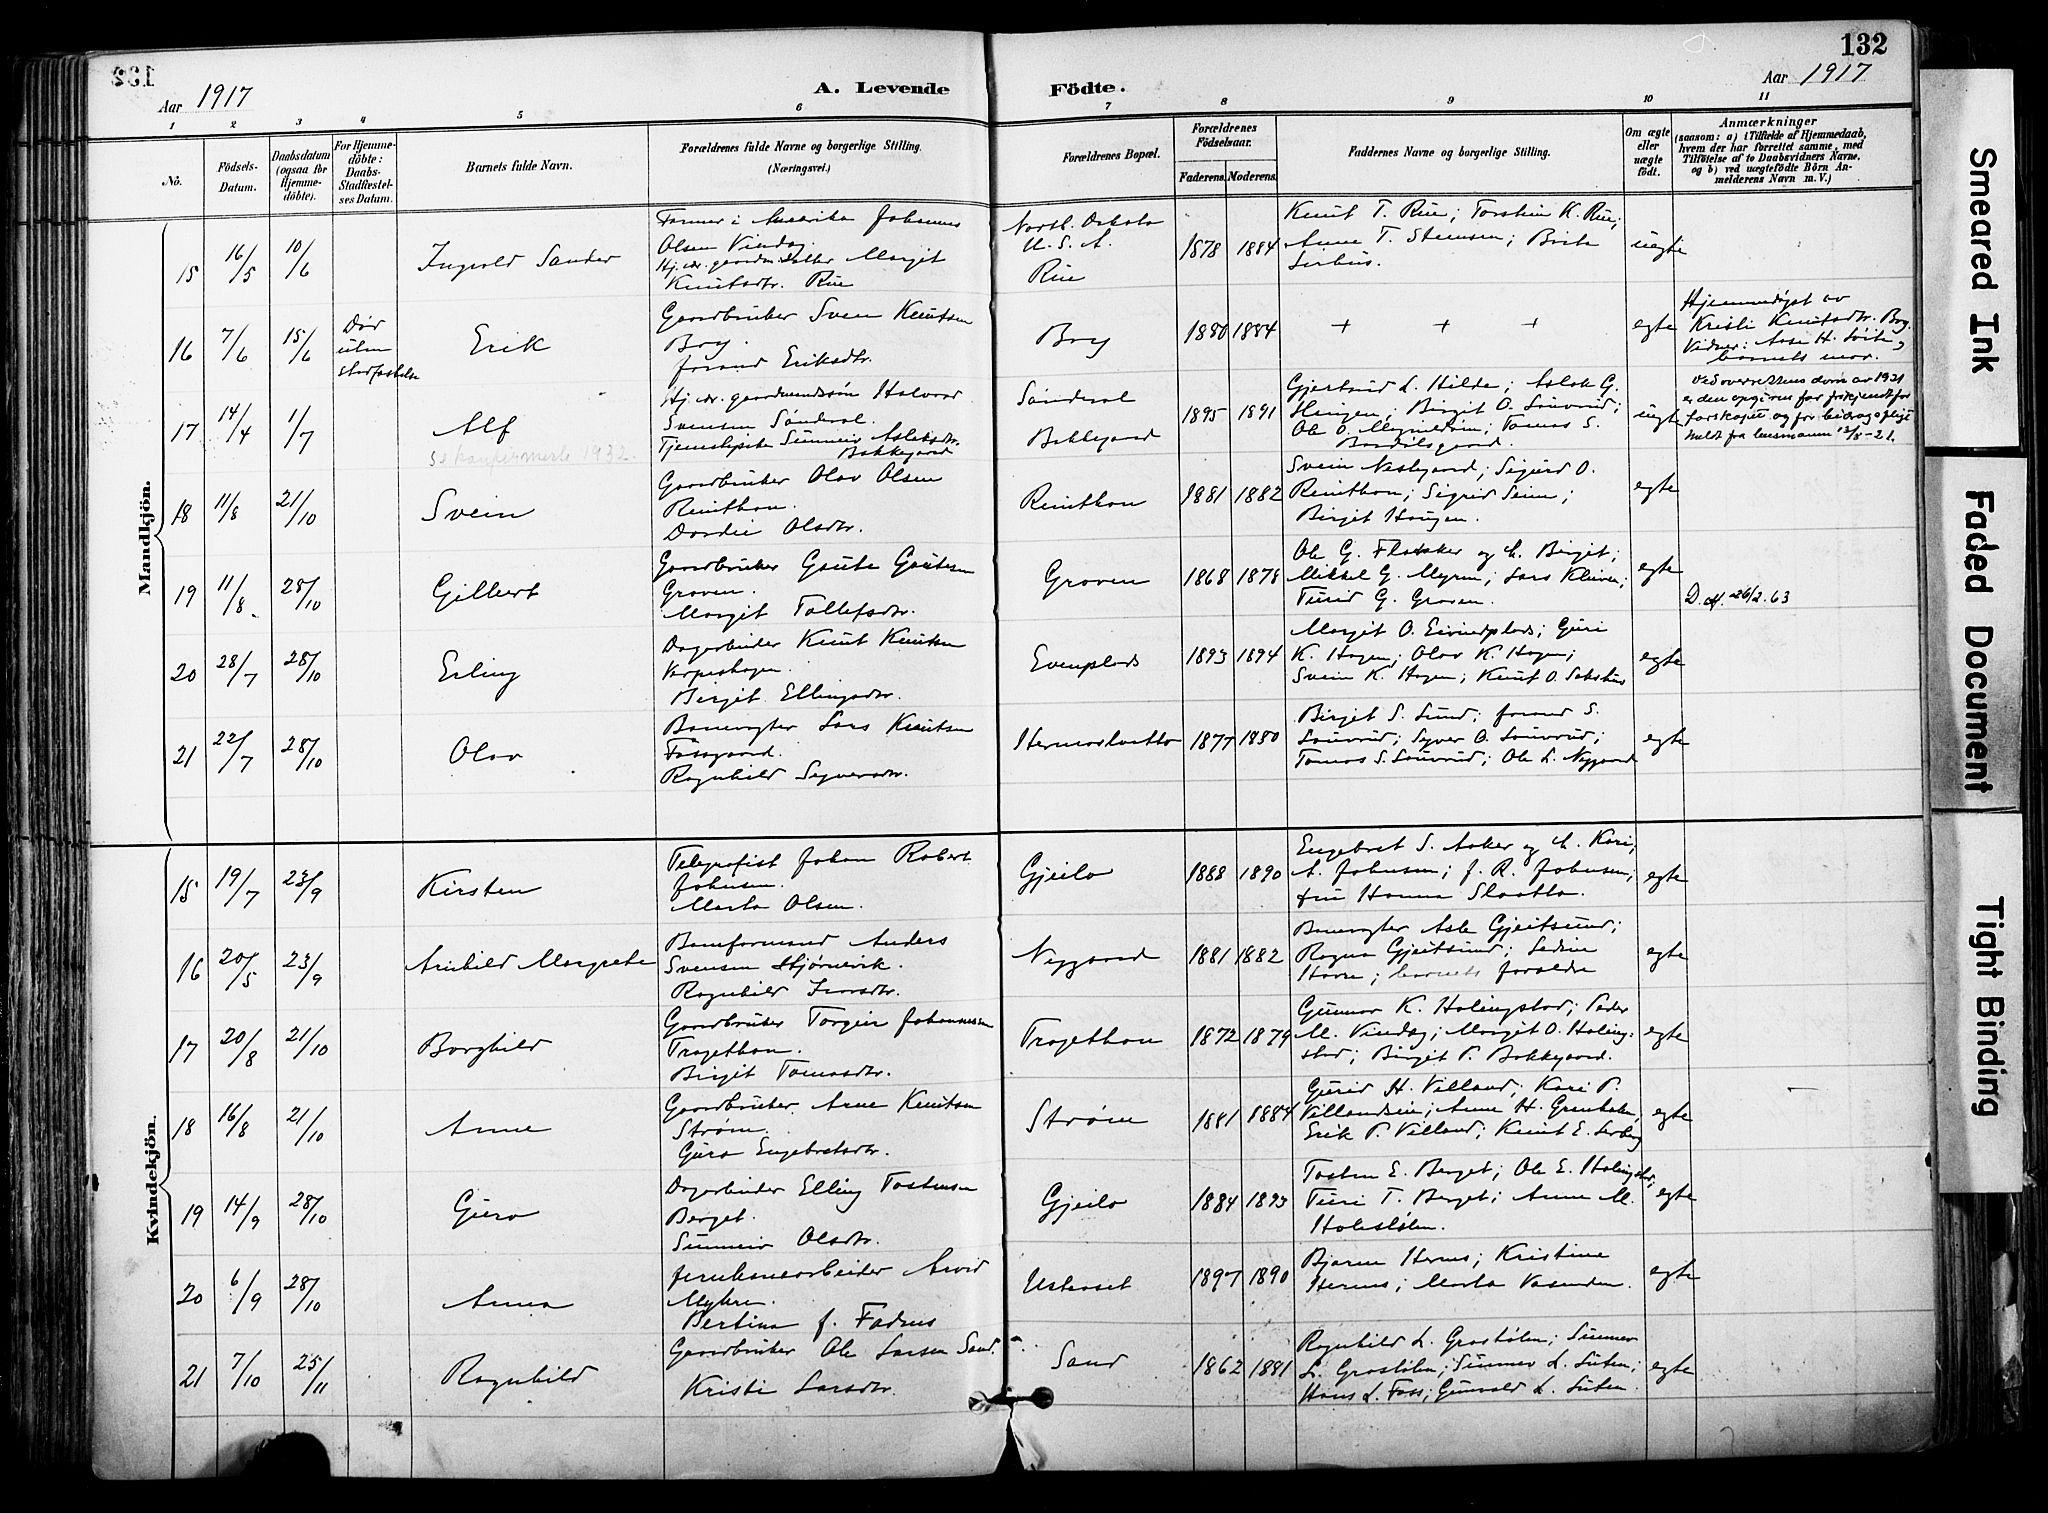 132
Aar 1917
A. Levende Födte.
132
Aar 1917
1 2 3 4 5 6 7 8 9 10 11
No.
Födsels-
Datum.
Daabsdatum
(ogsaa for
Hjemme-
döbte).
For Hjemme-
döbte:
Daabs-
Stadfæstel-
ses Datum.
Barnets fulde Navn.
Forældrenes fulde Navne og borgerlige Stilling.
(Næringsvei.)
Forældrenes Bopæl.
Forældrenes
Födselsaar.
Faderens. Moderens.
Faddernes Navne og borgerlige Stilling.
Om ægte
eller
uægte
födt.
Anmærkninger
(saasom: a) i Tilfælde af Hjemmedaab,
hvem der har forrettet samme, med
Tilföielse af to Daabsvidners Navne,
og b) ved uægtefödte Börn An-
melderens Navn m. V.)
Mandkjön.
15 16/5 10/6 Ingvald Sander
Farmer i Amerika Johannes
Olsen Vindag.
Hj. v. gaardm. datter Margit
Knutsdtr. Rue
North Dakota
U. S. A.
Rue
1878 1884
Knut T. Rue; Torstein K. Rue;
Anne T. Stensen; Birte
uegte
16 7/6 15/6
Død
uten
stadfæstelse
Erik
Gaardbruker Sven Knutsen
Bray.
Jorand Eriksdtr.
Bray
1880 1884
+ + +
egte
Hjemmedøpt av
Kristi Knutsdtr. Bry.
Vidner: Aase H.
barnets mor.
17 14/4 1/7 Alf
Se konfirmerte 1932.
Hj. v. gaardmandssøn Halvor
Svensen Sønderal.
Tjenestpike Sunneiv Aslaksdtr.
Bakkegaard
Sønderal
Bakkegaard
1895 1891
Gjertrud L. Hilde; Aslak G.
Haugen; Birgit O. Lauvrud;
Ole O. Myrmedom; Tomas S.
uegte
Ved overrettens dom av 1921
er den opgivne far frikjendt for
farskapet og for bidragspligt
Meldt fra lensmann 13/8-21.
18 11/8 21/10 Svein
Gaardbruker Olav Olsen
Renthon.
Dordei Olsdtr.
Renthon
1881 1882
Svein Neslegaard; Sigurd O.
Renthon; Sigrid Seim;
Birgit Haugen.
egte
19 11/8 28/10 Gilbert
Gaardbruker Gaute Gautesen
Groven.
Margit Tollefsdtr.
Groven
1868 1878
Ole G. Flataker og h. Birgit;
Mikkel G. Myren; Lars Kleiven;
Turid G. Groven.
egte
D. Af. 26/2. 63
20 28/7 28/10 Erling
Dagarbeider Knut Knutsen
Verpeshagen.
Birgit Ellingsdtr.
Evenplads
1893 1894
Margit O. Eivindplads; Guri
K. Hagen; Olav K. Hagen;
Svein K. Hagen; Knut O.
egte
21 22/7 28/10 Olav
Banevogter Lars Knutsen
Fossgaard.
Ragnhild Syversdtr.
Hermoskvotto
1877 1880
Birgit S. Sund; Jorand S.
Lauvrud; Syver O. Lauvrud;
Tomas S. Lauvrud; Ole L. Nygaard
egte
Kvindekjön.
15 19/7 23/9 Kirsten
Telegrafist Johan Robert
Johnsen.
Marta Olsen.
Gjeilo
1888 1890
Engebret S. Aaker og h. Kari;
A. Johnsen; J. R. Johnsen;
fru Hanna Slaatto.
egte
16 20/5 23/9 Arnhild Margrete
Baneformand Anders
Svensen Stjørnevik.
Ragnhild Ivarsdtr.
Nygaard
1881 1882
Banevogter Asle Gjeitsund;
Ragna Gjeitsund; Sedine
Havre; barnets forældre
egte
17 20/8 21/10 Borghild
Gaardbruker Torgeir Johannessen
Tragethon.
Birgit Tomasdtr.
Tragethon
1872 1879
Gunnar K. Holingstad; Peder
M. Vindag; Margit O. Holing-
stad; Birgit P. Bakkegaard.
egte
18 16/8 21/10 Anne
Gaardbruker Arne Knutsen
Strøm.
Guro Engebretsdtr.
Strøm
1881 1884
Gurid H. Villand; Kari P.
Villandseie; Anne H. Grønholen,
Erik P. Villand; Knut E.
egte
19 14/9 28/10 Guro
Dagarbeider Elling Tostensen
Berget.
Sunneiv Olsdtr.
Gjeilo
1884 1893
Tosten E. Berget; Ole E. Holingstad;
Turi T. Berget; Anne M.
Holestølen.
egte
20 6/9 28/10 Anna
Jernbanearbeider Arvid
Myhre.
Bertina f. Fadnes
Ustaoset
1897 1890
Bjarne Hernes; Kristine
Hernes; Marta Vasenden.
egte
21 7/10 25/11 Ragnhild
Gaardbruker Ole Larsen Sand.
Kristi Larsdtr.
Sand
1862 1881
Ragnhild L. Grostølen; Sunnev
L. Grostølen; Sunnev L. Luten;
Hans L. Foss; Gunvald L. Luten.
egte
Smeared Ink
Faded Document
Tight Binding